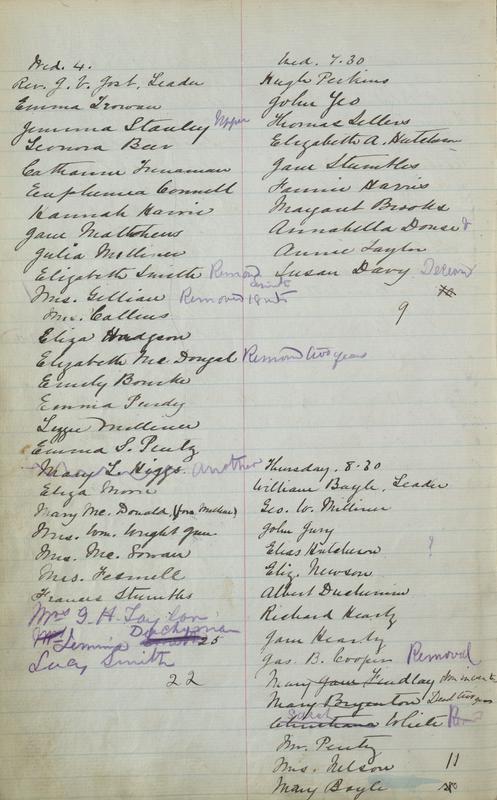 Wed. 4.
Rev. G. V. Jost, Leader
Emma Trowan
Jemima Stanley Upper
Leonora Bew
Catharine Trenaman
Euphemia Connell
Hannah Harris
Jane Mathews
Julia Milliner
Elizabeth Smith Remov
Mrs. Gillian Removed 18 mts
Mrs. Collins
Eliza Hodgson
Elizabeth Mc Dougal Remov two years
Emily Bourke
Emma Purdy
Lizzie Milliner
Emma S. Pentz
Mary L. Higgs another
Eliza Morris
Mary Mc. Donald,
Mrs. Wm. Wright
Mrs. Mc. Gowan
Mrs. Fesmell
Frances Stumbles
Mrs G. H. Taylor
Jemima Duchyman 25
Lucy Smith
22
Wed. 7.30
Hugh Perkins
John Yeo
Thomas Sellers
Elizabeth A. Hutcheson
Jane Stumbles
Fannie Harris
Margaret Brooks
Annabella Douse
Annie Taylor
Susan Davy
9
Thursday. 8.30
William Bayle, Leader
Geo. W. Milliner
John Jury
Elias Hutcheson ?
Eliz. Newson
Albert
Richard Hearty
Jane Hearty
Jas. B. Cooper Removal
Mary Jane Findlay
Mary Bryenton Dead two years
Sarah Christiana White
Mr. Pentz
Mrs. Nelson 11
Mary Bayle